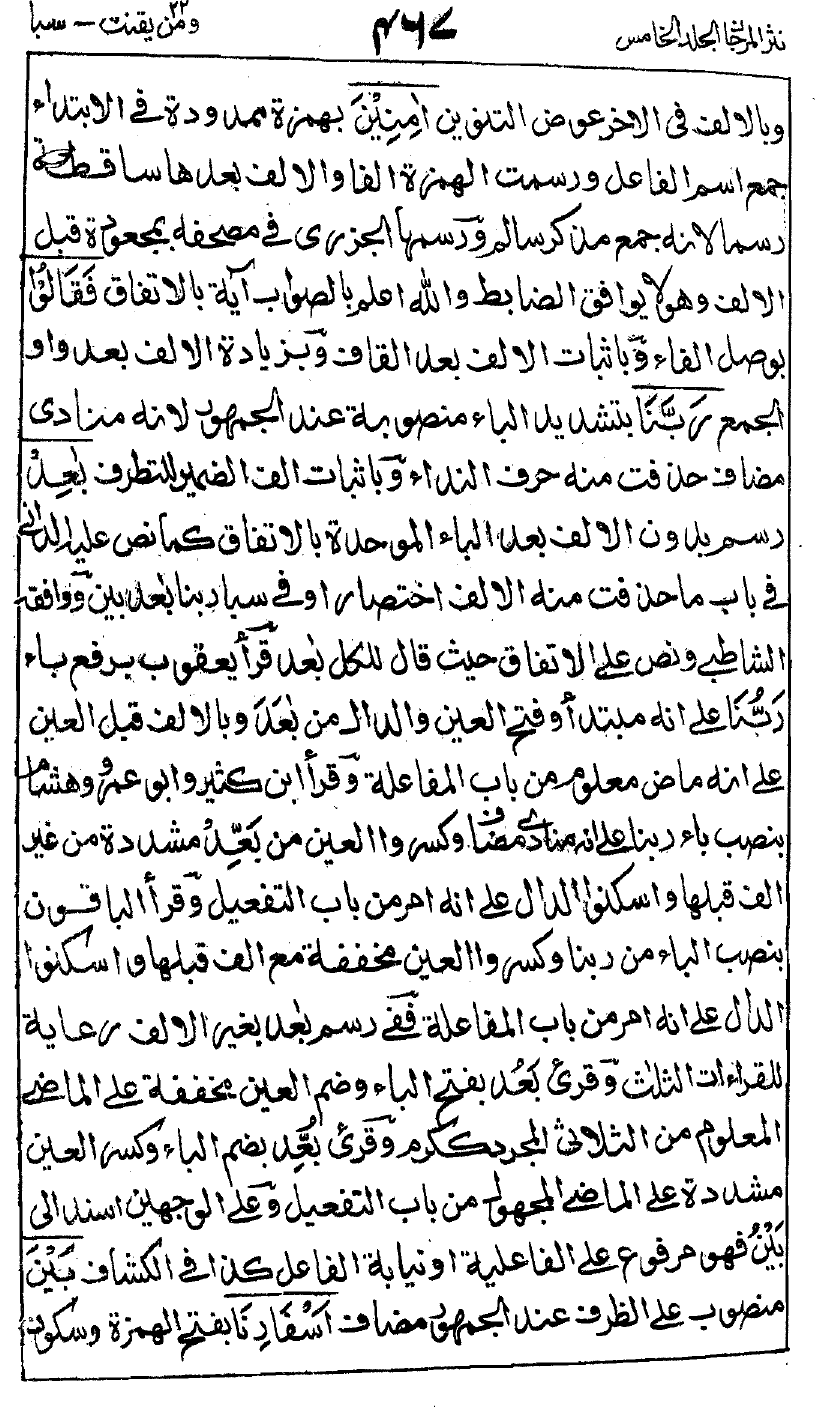 نثر المرجان الجلد الخامس ۴۶۷ ومن يقنت ۲۲ – سبا
وبالالف فى الاخر عوض التنوين اٰمِنِيْنَ بهمزة ممدودة فى الابتداء
جمع اسم الفاعل ورسمت الهمزة الفا والالف بعدها ساقطة
رسما لانه جمع مذكر سالم ورسمها الجزرى فى مصحفه بمجعودة قبل
الالف وهو لا يوافق الضابط والله اعلم بالصواب آية بالاتفاق فَقَالُوْا
بوصل الفاء وباثبات الالف بعد القاف وبزيادة الالف بعد واو
الجمع رَبَّنَا بتشديد الباء منصوبة عند الجمهور لانه منادى
مضاف حذفت منه حرف النداء وباثبات الف الضمير للتطرف بٰعِدْ
رسم بدون الالف بعد الباء الموحدة بالاتفاق كما نص عليه الدانى
فى باب ما حذفت منه الالف اختصارا وفى سبا ربنا بٰعد بين ووافقه
الشاطبى ونص على الاتفاق حيث قال للكل بٰعد قرأ يعقوب برفع باء
رَبُّنَا على انه مبتدأ وفتح العين والدال من بٰعَدَ وبالالف قبل العين
على انه ماض معلوم من باب المفاعلة وقرأ ابن كثير وابو عمرو وهشام
بنصب باء ربنا على انه منادى مضاف وكسروا العين من بَعِّدْ مشددة من غير
الف قبلها واسكنوا الدال على انه امر من باب التفعيل وقرأ الباقون
بنصب الباء من ربنا وكسروا العين مخففة مع الف قبلها واسكنوا
الدال على انه امر من باب المفاعلة ففى رسم بٰعد بغير الالف رعاية
للقراءات الثلٰث وقرئ بَعُدَ بفتح الباء وضم العين مخففة على الماضى
المعلوم من الثلاثى المجرد ككرم وقرئ بُعِّد بضم الباء وكسر العين
مشددة على الماضى المجهول من باب التفعيل وعلى الوجهين اسند الى
بَيْنُ فهو مرفوع على الفاعلية او نيابة الفاعل كذا فى الكشاف بَيْنَ
منصوب على الظرف عند الجمهور مضاف اَسْفَارِنَا بفتح الهمزة وسكون